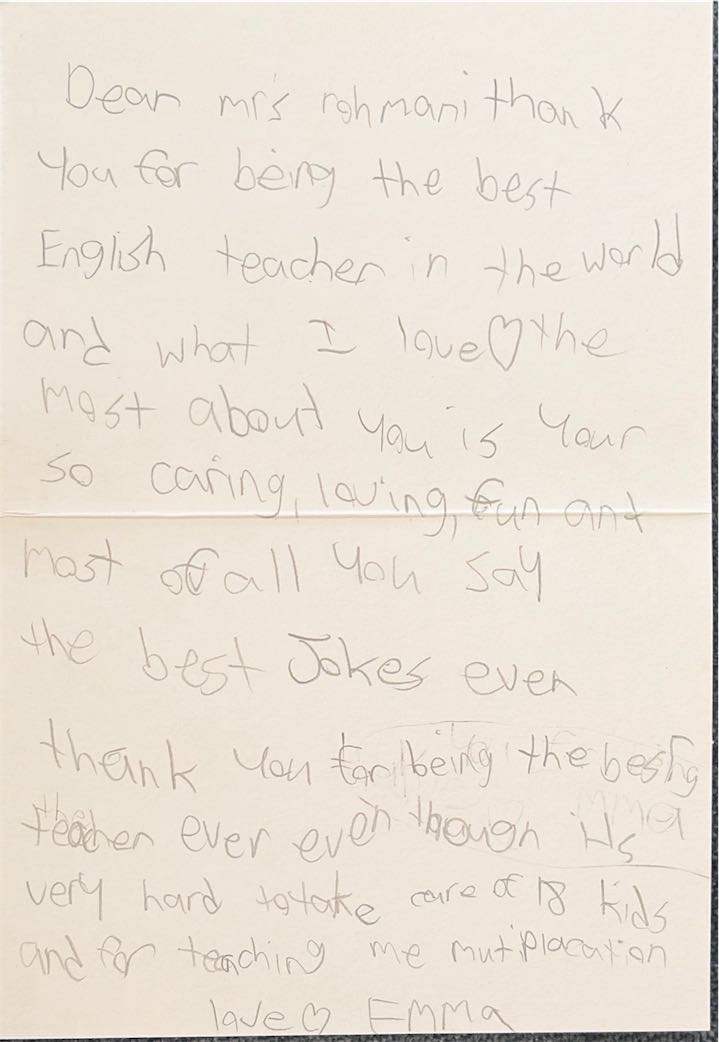 Dear mrs rohmani thank
you for being the best
English teacher in the world
and what I love♡the
most about you is your
so caring, loving, fun and
most of all you say
the best Jokes ever
thank you for being the best
teacher ever even though its
very hard to take care of 18 kids
and for teaching me mutiplacation
love♡ EMMA